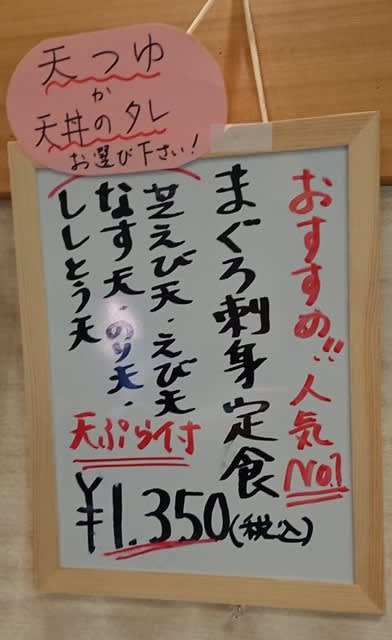 天つゆ
か
天丼のタレ
お選び下さい!
おすすめ!! 人気No.1
まぐろ刺身定食
芝えび天・えび天
なす天・のり天・
ししとう天
天ぷら付
¥1.350(税込)